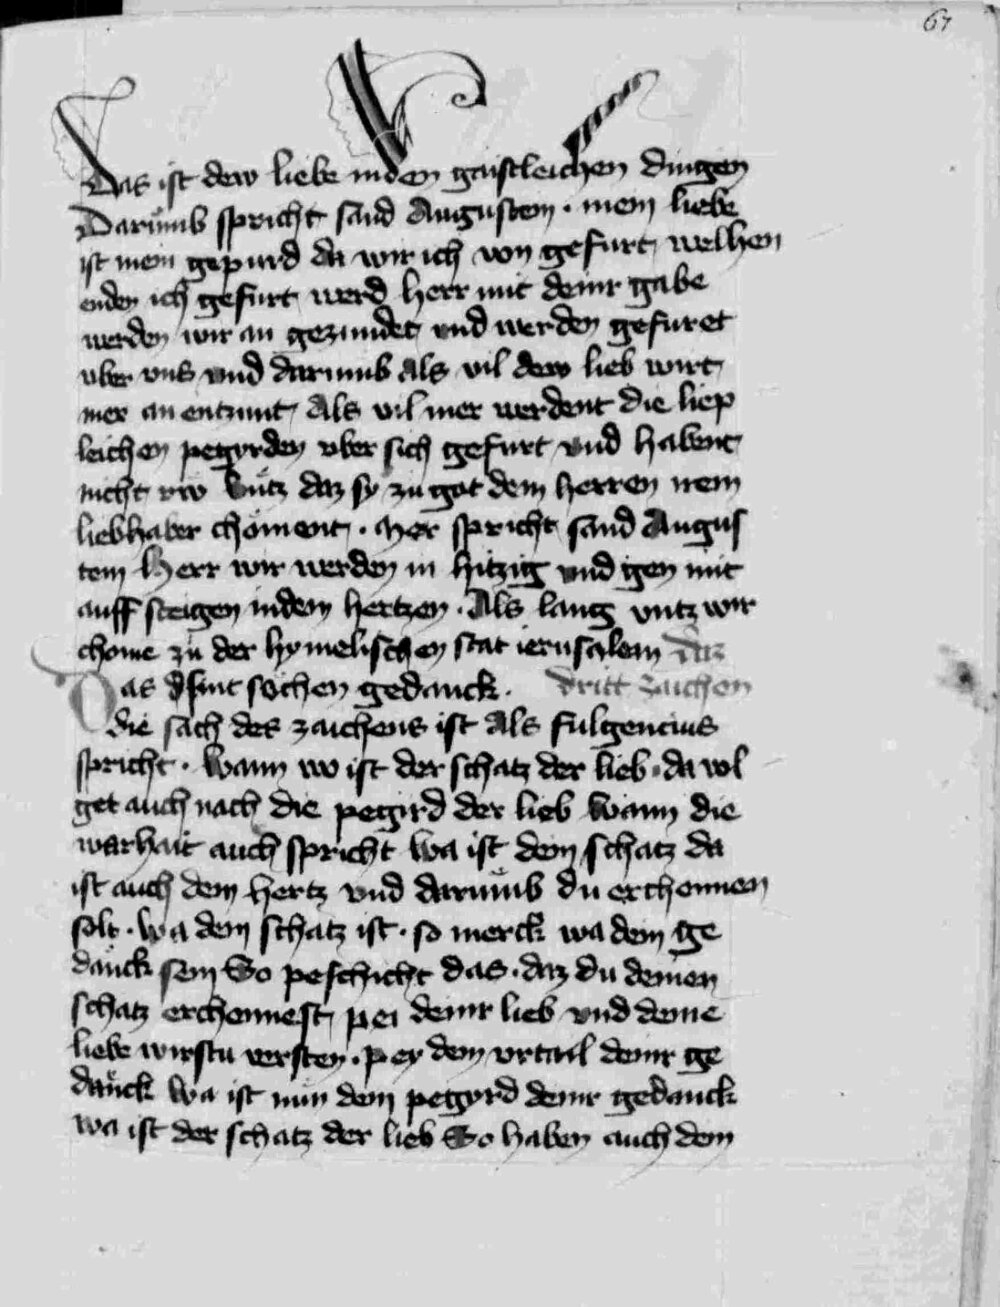 67
Das ist dew liebe in den gaistleichen dingen
Darůmb spricht sand Augustein · mein liebe
ist mein gepurd da wir ich von gefurt welhen
enden ich gefurt werd herr mit deinr gabe
werden wir an gezundet vnd werden gefuret
vber vns vnd darumb als vil dew lieb wirt
mer an entzunt als vil mer werdent die liep
leichen pegyrden vber sich gefurt vnd habent
nicht rw vntz daz sy zu got dem herren irem
liebhaber chöment · Mer spricht sand Augus
tein Herr wir werden in hitzig vnd gen mit
auff steigen in dem hertzen · Als lang vntz wir
chome zu der hymelischen stat ierusalem daz
Das sint sochen gedanck · dritt zaichen
die sach des zaichens ist als fulgencius
spricht · wann wo ist der schatz der lieb · da wol
get auch nach die pegird der lieb wann die
warhait auch spricht wa ist dein schatz da
ist auch dein hertz vnd darůmb du erchennen
solt · wa dein schatz ist · so merck wa dein ge
danck sein So peschicht das · daz du deinen
schatz erchennest pei deinr lieb vnd deine
liebe wirstu versten · pey dem vrtail deinr ge
danck wa ist nun dein pegyrd deinr gedanck
wa ist der schatz der lieb So haben auch dein